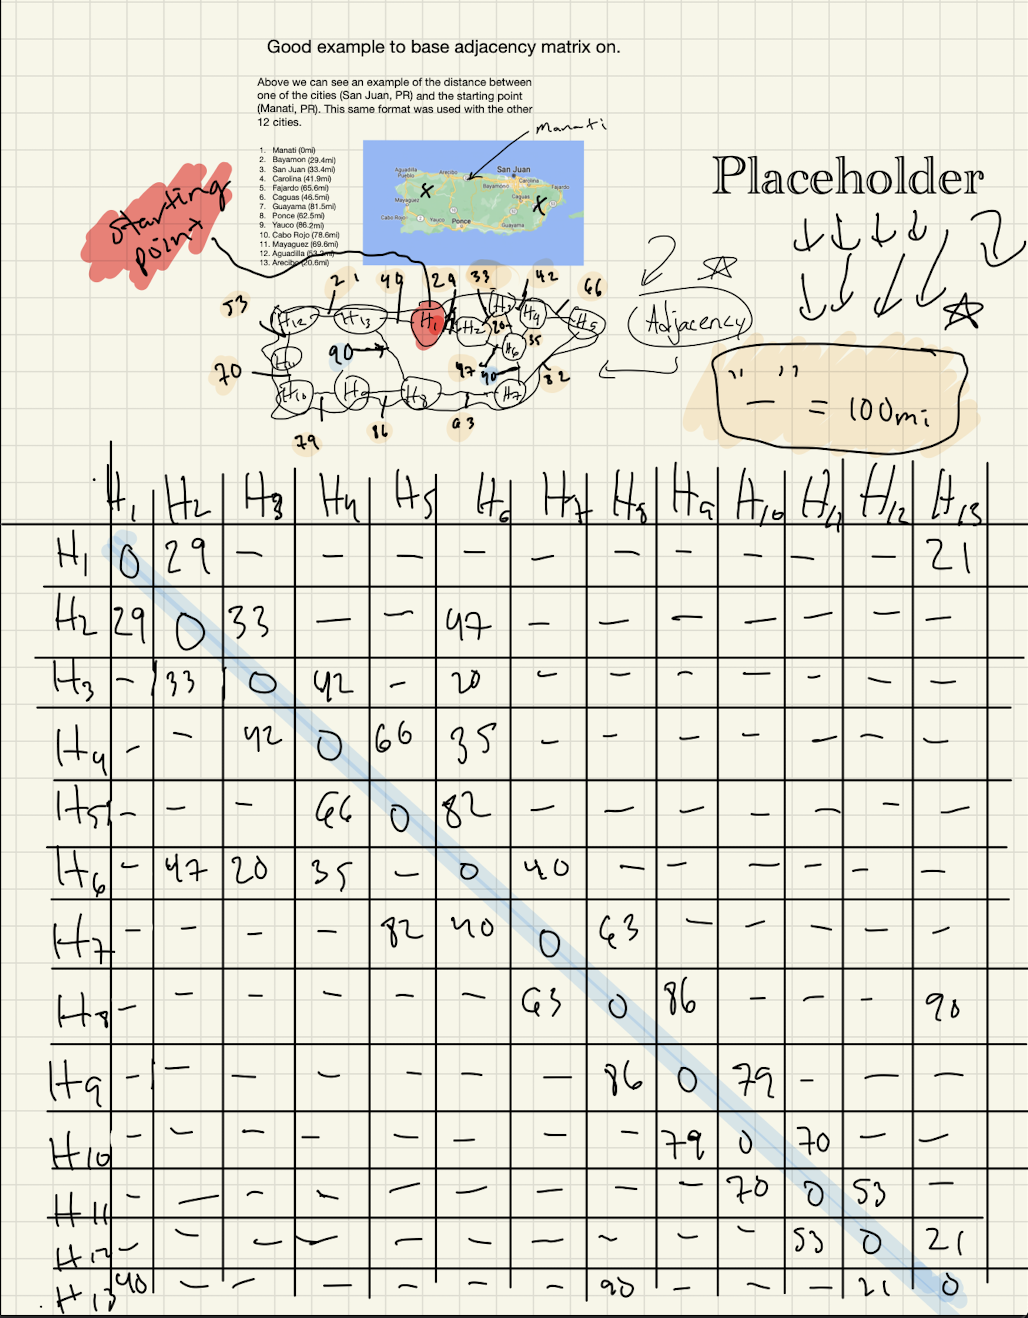 Good example to base adjacency matrix on.
Above we can see an example of the distance between
one of the cities (San Juan, PR) and the starting point
(Manati, PR). This same format was used with the other
12 cities.
Manati
1. Manati (0mi)
2. Bayamon (29.4mi)
3. San Juan (33.4mi)
4. Carolina (41.9mi)
5. Fajardo (65.6mi)
6. Caguas (46.5mi)
7. Guayama (81.5mi)
8. Ponce (62.5mi)
9. Yauco (86.2mi)
10. Cabo Rojo (78.6mi)
11. Mayaguez (69.6mi)
12. Aguadilla (53.2mi)
13. Arecibo (20.6mi)
Aguadilla
Pueblo
Arecibo
San Juan
Carolina
Bayamón
Fajardo
Mayaguez
Caguas
Cabo Rojo
Yauco
Ponce
Guayama
Placeholder
starting
point
53 21 49 29 33 42 66
H12 H13 H1 H2 H3 H4 H5
20 35
H11 90 H6
70 47 40 82
H10 H9 H8 H7
79 86 63
Adjacency
" — " = 100mi
H1 H2 H3 H4 H5 H6 H7 H8 H9 H10 H11 H12 H13
H1 0 29 — — — — — — — — — — 21
H2 29 0 33 — — 47 — — — — — — —
H3 — 33 0 42 — 20 — — — — — — —
H4 — — 42 0 66 35 — — — — — — —
H5 — — — 66 0 82 — — — — — — —
H6 — 47 20 35 — 0 40 — — — — — —
H7 — — — — 82 40 0 63 — — — — —
H8 — — — — — — 63 0 86 — — — 90
H9 — — — — — — — 86 0 79 — — —
H10 — — — — — — — — 79 0 70 — —
H11 — — — — — — — — — 70 0 53 —
H12 — — — — — — — — — — 53 0 21
H13 40 — — — — — — 90 — — — 21 0